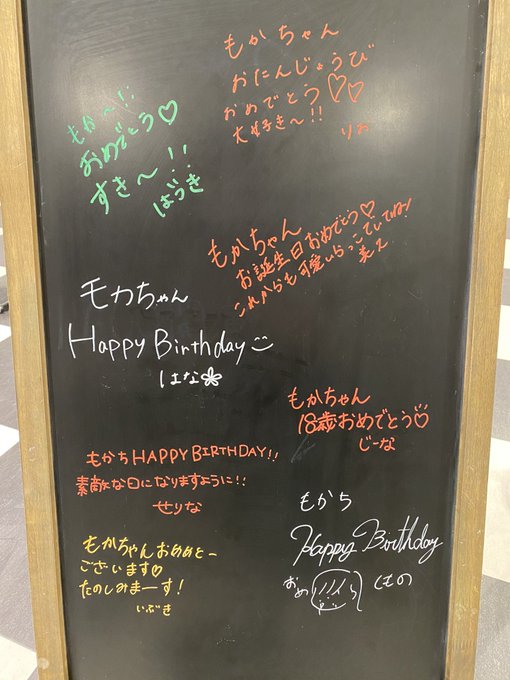 もかちゃん
おたんじょうび
おめでとう♡♡
大好き〜!!
りお
もか〜!!
おめでとう♡
すき〜!!
はづき
もかちゃん
お誕生日おめでとう♡
これからも可愛いらっこでいてね!
美久
モカちゃん
Happy Birthday
はな
もかちゃん
18歳おめでとう♡
じーな
もかち HAPPY BIRTHDAY!!
素敵な日になりますように!!
せりな
もかちゃんおめめとー
ございます♡
たのしみまーす!
いぶき
もかち
Happy Birthday
おめ
くもの